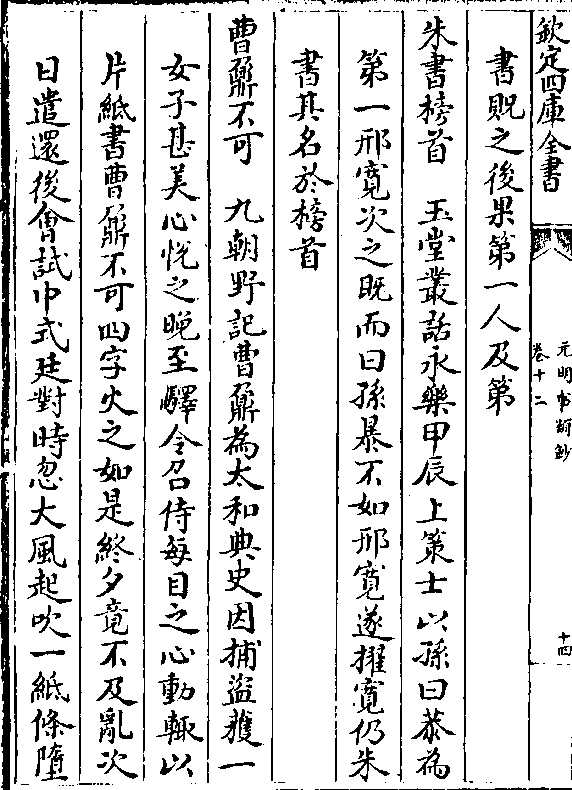 欽定四庫全書
元明事類鈔
卷十二
十四
書貺之後果第一人及第
朱書榜首　玉堂叢話永樂甲辰上策士以孫曰恭為
第一邢寬次之既而曰孫暴不如邢寬遂擢寬仍朱
書其名於榜首
曹鼐不可　九朝野記曹鼐為太和典史因捕盜獲一
女子甚美心恱之晚至驛令召侍每目之心動輒以
片紙書曹鼐不可四字火之如是終夕竟不及亂次
日遣還後會試中式廷對時忽大風起吹一紙條墮